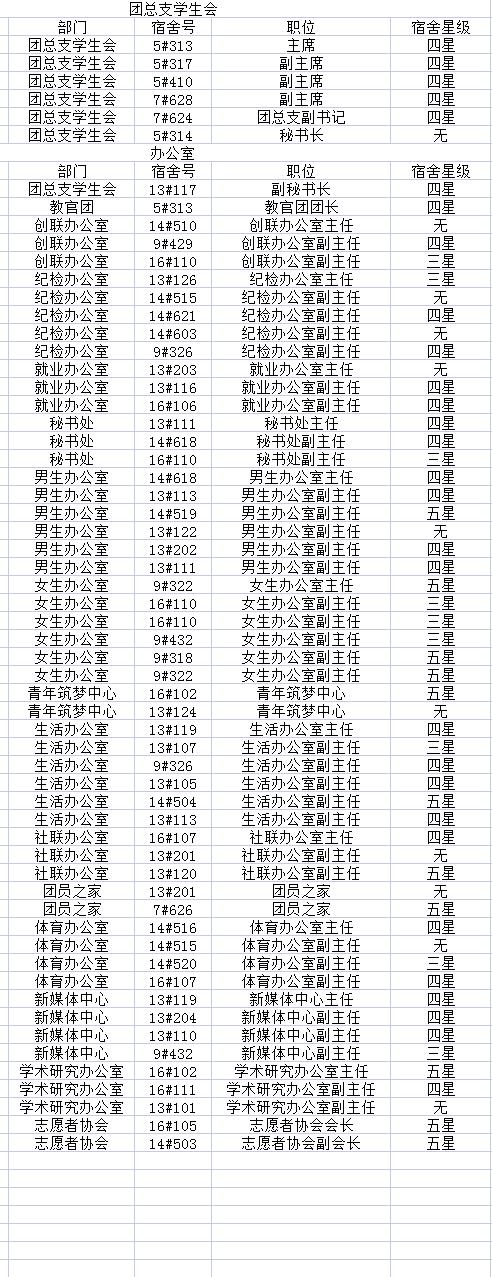 团总支学生会
部门 宿舍号 职位 宿舍星级
团总支学生会 5#313 主席 四星
团总支学生会 5#317 副主席 四星
团总支学生会 5#410 副主席 四星
团总支学生会 7#628 副主席 四星
团总支学生会 7#624 团总支副书记 四星
团总支学生会 5#314 秘书长 无
办公室
部门 宿舍号 职位 宿舍星级
团总支学生会 13#117 副秘书长 四星
教官团 5#313 教官团团长 四星
创联办公室 14#510 创联办公室主任 无
创联办公室 9#429 创联办公室副主任 四星
创联办公室 16#110 创联办公室副主任 三星
纪检办公室 13#126 纪检办公室主任 三星
纪检办公室 14#515 纪检办公室副主任 无
纪检办公室 14#621 纪检办公室副主任 四星
纪检办公室 14#603 纪检办公室副主任 无
纪检办公室 9#326 纪检办公室副主任 四星
就业办公室 13#203 就业办公室主任 无
就业办公室 13#116 就业办公室副主任 四星
就业办公室 16#106 就业办公室副主任 四星
秘书处 13#111 秘书处主任 四星
秘书处 14#618 秘书处副主任 四星
秘书处 16#110 秘书处副主任 三星
男生办公室 14#618 男生办公室主任 四星
男生办公室 13#113 男生办公室副主任 四星
男生办公室 14#519 男生办公室副主任 五星
男生办公室 13#122 男生办公室副主任 无
男生办公室 13#202 男生办公室副主任 四星
男生办公室 13#111 男生办公室副主任 四星
女生办公室 9#322 女生办公室主任 五星
女生办公室 16#110 女生办公室副主任 三星
女生办公室 16#110 女生办公室副主任 三星
女生办公室 9#432 女生办公室副主任 三星
女生办公室 9#318 女生办公室副主任 五星
女生办公室 9#322 女生办公室副主任 五星
青年筑梦中心 16#102 青年筑梦中心 五星
青年筑梦中心 13#124 青年筑梦中心 无
生活办公室 13#119 生活办公室主任 四星
生活办公室 13#107 生活办公室副主任 三星
生活办公室 9#326 生活办公室副主任 四星
生活办公室 13#105 生活办公室副主任 四星
生活办公室 14#504 生活办公室副主任 五星
生活办公室 13#113 生活办公室副主任 四星
社联办公室 16#107 社联办公室主任 四星
社联办公室 13#201 社联办公室副主任 无
社联办公室 13#120 社联办公室副主任 五星
团员之家 13#201 团员之家 无
团员之家 7#626 团员之家 五星
体育办公室 14#516 体育办公室主任 四星
体育办公室 14#515 体育办公室副主任 无
体育办公室 14#520 体育办公室副主任 三星
体育办公室 16#107 体育办公室副主任 四星
新媒体中心 13#119 新媒体中心主任 四星
新媒体中心 13#204 新媒体中心副主任 四星
新媒体中心 13#110 新媒体中心副主任 四星
新媒体中心 9#432 新媒体中心副主任 三星
学术研究办公室 16#102 学术研究办公室主任 五星
学术研究办公室 16#111 学术研究办公室副主任 四星
学术研究办公室 13#101 学术研究办公室副主任 无
志愿者协会 16#105 志愿者协会会长 五星
志愿者协会 14#503 志愿者协会副会长 五星